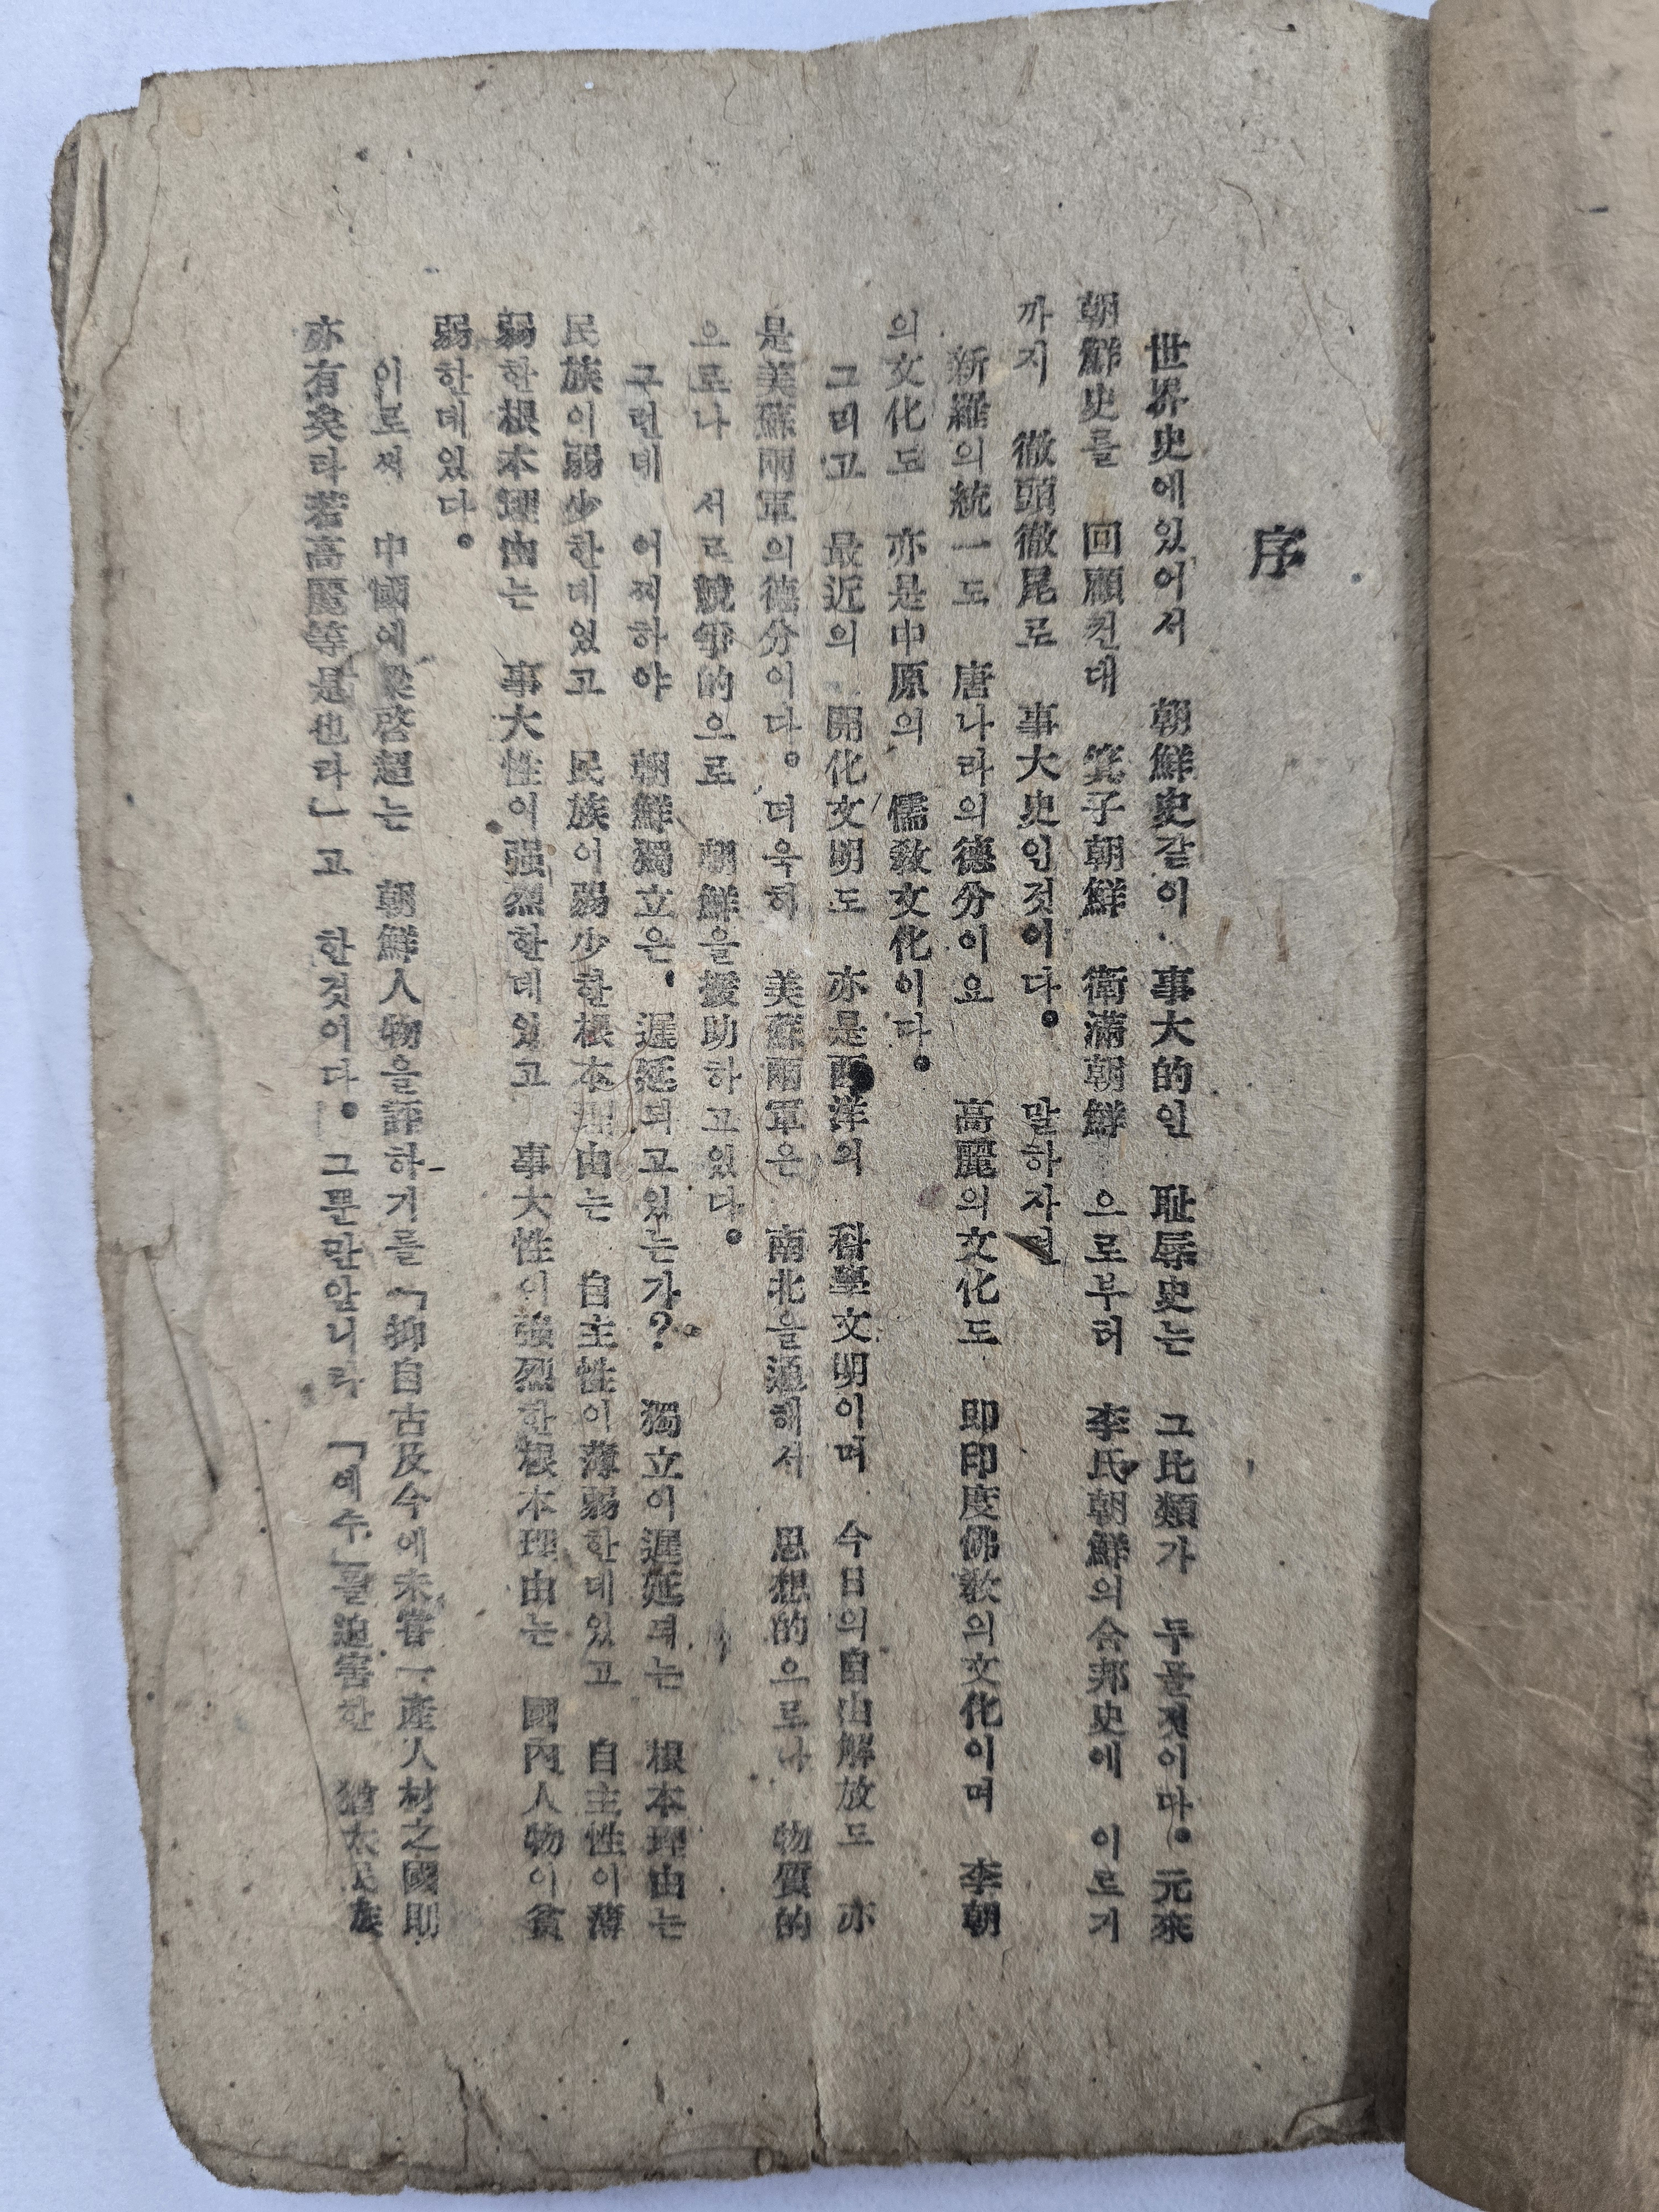 序
世界史에있어서 朝鮮史같이 事大的인 耻辱史는 그比類가 두물것이다。元來
朝鮮史를 回顧컨대 箕子朝鮮 衛滿朝鮮 으로부허 李氏朝鮮의合邦史에 이르기
까지 徹頭徹尾로 事大史인것이다。 말하자면
新羅의統一도 唐나라의德分이요 高麗의文化도 即印度佛敎의文化이며 李朝
의文化도 亦是中原의 儒敎文化이다。
그리고 最近의 開化文明도 亦是西洋의 科學文明이며 今日의自由解放도 亦
是美蘇兩軍의德分이다。더욱히 美蘇兩軍은 南北을通해서 思想的으로나 物質的
으로나 서로競爭的으로 朝鮮을援助하고있다。
구런데 어찌하야 朝鮮獨立은、遲延되고있는가? 獨立이遲延되는 根本理由는
民族이弱少한데있고 民族이弱少한根本理由는 自主性이薄弱한데있고 自主性이薄
弱한根本理由는 事大性이强烈한데있고 事大性이强烈한根本理由는 國內人物이貧
弱한데있다。
이로써 中國에梁啓超는 朝鮮人物을評하기를「抑自古及今에未嘗一產人材之國則
亦有矣라若高麗等是也라」고 한것이다。그뿐만않니라 「예수」를迫害한 猶太民族